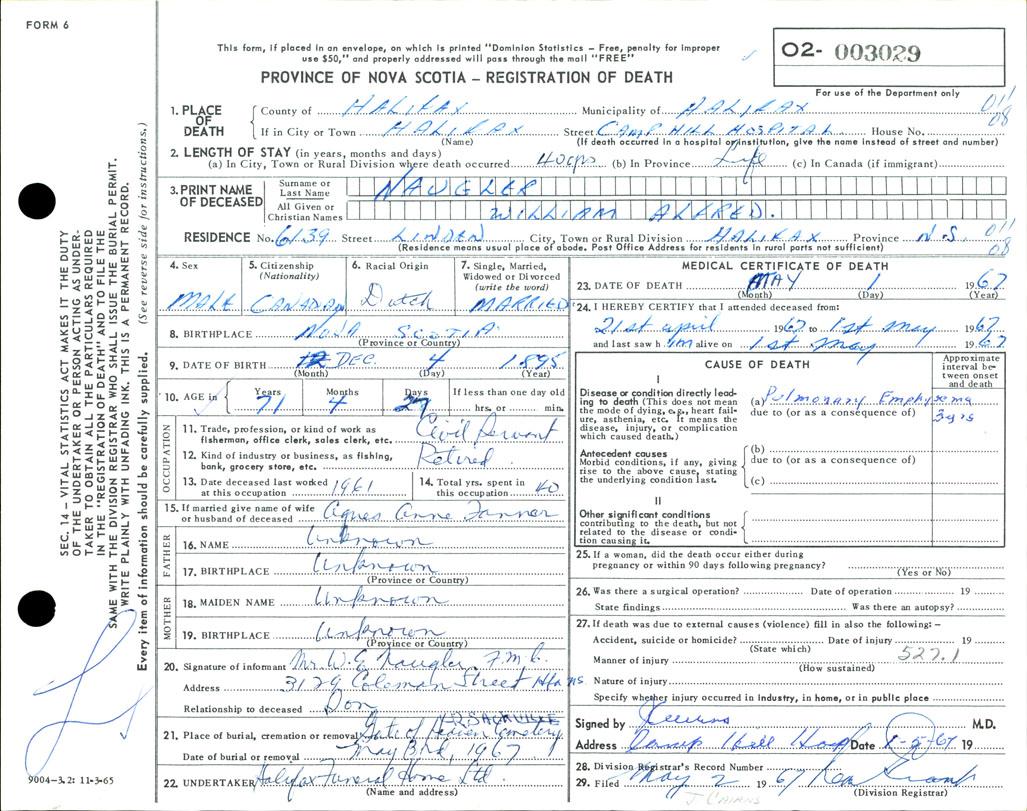 FORM 6
This form, if placed in an envelope, on which is printed "Dominion Statistics – Free, penalty for improper
use $50," and properly addressed will pass through the mail "FREE"
PROVINCE OF NOVA SCOTIA – REGISTRATION OF DEATH
O2- 003029
For use of the Department only
011
08
1. PLACE OF DEATH
County of HALIFAX Municipality of HALIFAX
If in City or Town HALIFAX Street CAMP HILL HOSPITAL House No.
(Name) (If death occurred in a hospital or institution, give the name instead of street and number)
2. LENGTH OF STAY (in years, months and days)
(a) In City, Town or Rural Division where death occurred 40 (b) In Province Life (c) In Canada (if immigrant)
3. PRINT NAME OF DECEASED
Surname or Last Name NAUGLER
All Given or Christian Names WILLIAM ALFRED.
RESIDENCE No. 6139 Street LINDEN City, Town or Rural Division HALIFAX Province N.S.
011
08
(Residence means usual place of abode. Post Office Address for residents in rural parts not sufficient)
4. Sex
MALE
5. Citizenship
(Nationality)
CANADIAN
6. Racial Origin
Dutch
7. Single, Married,
Widowed or Divorced
(write the word)
MARRIED
8. BIRTHPLACE NOVA SCOTIA
(Province or Country)
9. DATE OF BIRTH 12 DEC. 4 1895
(Month) (Day) (Year)
10. AGE in
Years
71
Months
4
Days
27
If less than one day old
hrs. or min.
OCCUPATION
11. Trade, profession, or kind of work as
fisherman, office clerk, sales clerk, etc. Civil Servant
12. Kind of industry or business, as fishing,
bank, grocery store, etc. Retired
13. Date deceased last worked
at this occupation 1961
14. Total yrs. spent in
this occupation 40
15. If married give name of wife
or husband of deceased Agnes Anne
FATHER
16. NAME Unknown
17. BIRTHPLACE Unknown
(Province or Country)
MOTHER
18. MAIDEN NAME Unknown
19. BIRTHPLACE Unknown
(Province or Country)
20. Signature of informant Mr. W. E. Naugler
Address 3129 Coleman Street Hfx NS
Relationship to deceased Son
SACKVILLE
21. Place of burial, cremation or removal Gate of Heaven Cemetery
Date of burial or removal May 3rd, 1967
22. UNDERTAKER Halifax Funeral Home Ltd.
(Name and address)
MEDICAL CERTIFICATE OF DEATH
23. DATE OF DEATH MAY 1 1967
(Month) (Day) (Year)
24. I HEREBY CERTIFY that I attended deceased from:
21st april 1967 to 1st May 1967
and last saw him alive on 1st May 1967
CAUSE OF DEATH
Approximate
interval be-
tween onset
and death
I
Disease or condition directly lead-
ing to death (This does not mean
the mode of dying, e.g., heart fail-
ure, asthenia, etc. It means the
disease, injury, or complication
which caused death.)
(a) Pulmonary Emphysema
due to (or as a consequence of)
3 yrs
Antecedent causes
Morbid conditions, if any, giving
rise to the above cause, stating
the underlying condition last.
(b)
due to (or as a consequence of)
(c)
II
Other significant conditions
contributing to the death, but not
related to the disease or condi-
tion causing it.
25. If a woman, did the death occur either during
pregnancy or within 90 days following pregnancy?
(Yes or No)
26. Was there a surgical operation? Date of operation 19
State findings Was there an autopsy?
27. If death was due to external causes (violence) fill in also the following: –
Accident, suicide or homicide? Date of injury 19
(State which)
527.1
Manner of injury
(How sustained)
Nature of injury
Specify whether injury occurred in industry, in home, or in public place
Signed by M.D.
Address Camp Hill Hosp Date 1-5-67 19
28. Division Registrar's Record Number
29. Filed May 2 1967
(Division Registrar)
J Cairns
SEC. 14 – VITAL STATISTICS ACT MAKES IT THE DUTY
OF THE UNDERTAKER OR PERSON ACTING AS UNDER-
TAKER TO OBTAIN ALL THE PARTICULARS REQUIRED
IN THE "REGISTRATION OF DEATH" AND TO FILE THE
SAME WITH THE DIVISION REGISTRAR WHO SHALL ISSUE THE BURIAL PERMIT.
WRITE PLAINLY WITH UNFADING INK. THIS IS A PERMANENT RECORD.
Every item of information should be carefully supplied. (See reverse side for instructions.)
9004–3.2: 11-3-65